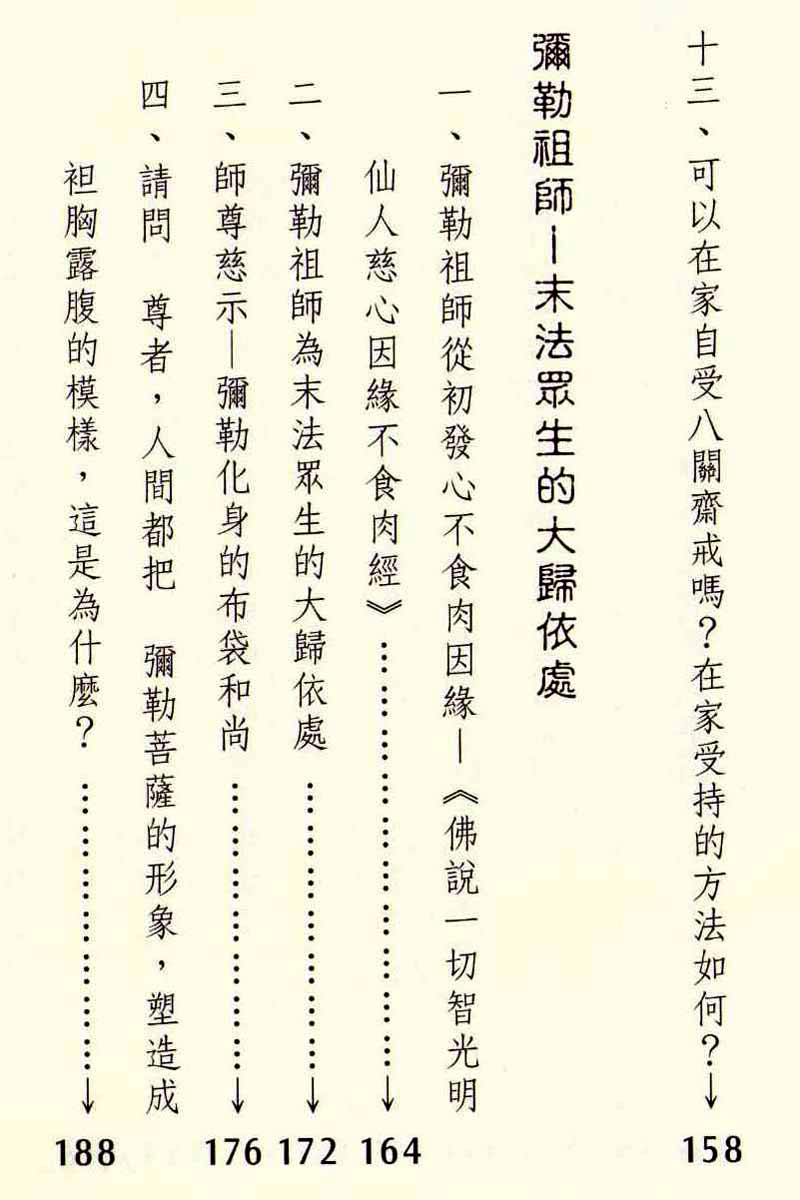 十三、可以在家自受八關齋戒嗎？在家受持的方法如何？↓158
彌勒祖師—末法眾生的大歸依處
一、彌勒祖師從初發心不食肉因緣—《佛說一切智光明
仙人慈心因緣不食肉經》………………………………↓164
二、彌勒祖師為末法眾生的大歸依處……………………↓172
三、師尊慈示—彌勒化身的布袋和尚……………………↓176
四、請問　尊者，人間都把　彌勒菩薩的形象，塑造成
袒胸露腹的模樣，這是為什麼？……………………↓188